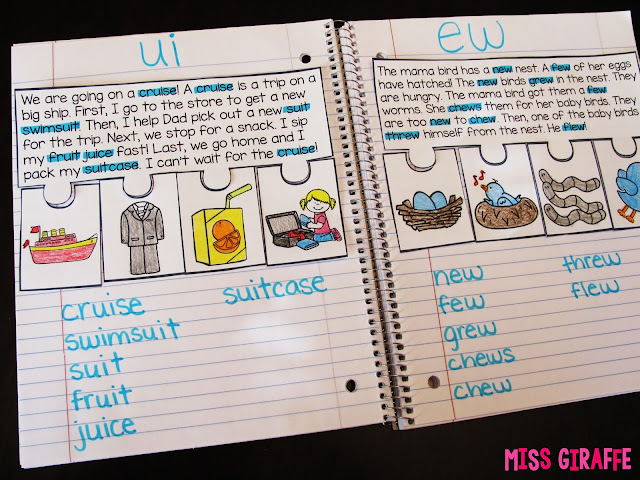 ui
We are going on a cruise! A cruise is a trip on a
big ship. First, I go to the store to get a new
swimsuit! Then, I help Dad pick out a new suit
for the trip. Next, we stop for a snack. I sip
my fruit juice fast! Last, we go home and I
pack my suitcase. I can't wait for the cruise!
cruise
swimsuit
suit
fruit
juice
suitcase
ew
The mama bird has a new nest. A few of her eggs
have hatched! The new birds grew in the nest. They
are hungry. The mama bird got them a few
worms. She chews them for her baby birds. They
are too new to chew. Then, one of the baby birds
threw himself from the nest. He flew!
new
few
grew
chews
chew
threw
flew
MISS GIRAFFE